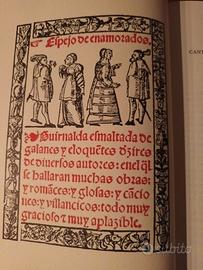 Espejo de enamorados.
Guirnalda esmaltada de
galanes y eloquẽtes dezires
de diuersos autores: enel ql
se hallaran muchas obras:
y romãces: y glosas: y cãcio
nes: y villancicos: todo muy
gracioso & muy aplazible.
CANT
subito